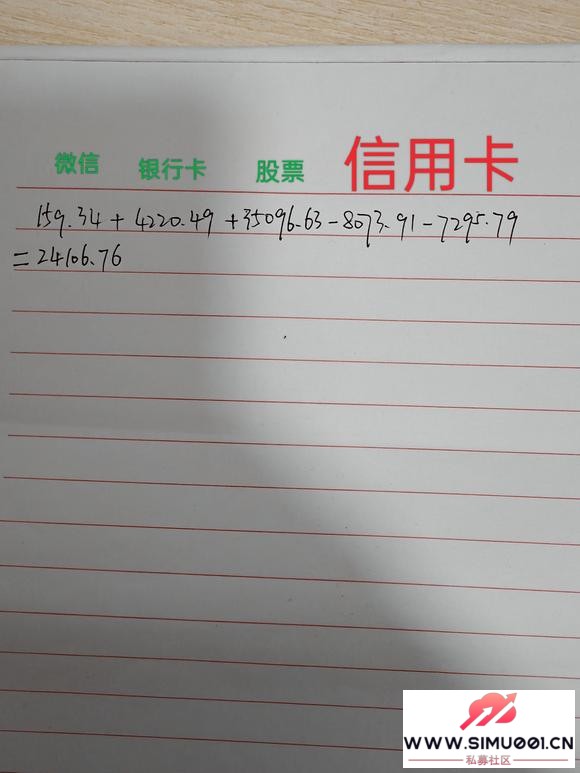 微信 银行卡 股票 信用卡
159.34+4220.49+35096.63-8073.91-7295.79
=24106.76
WWW.SIMU001.CN
私募社区